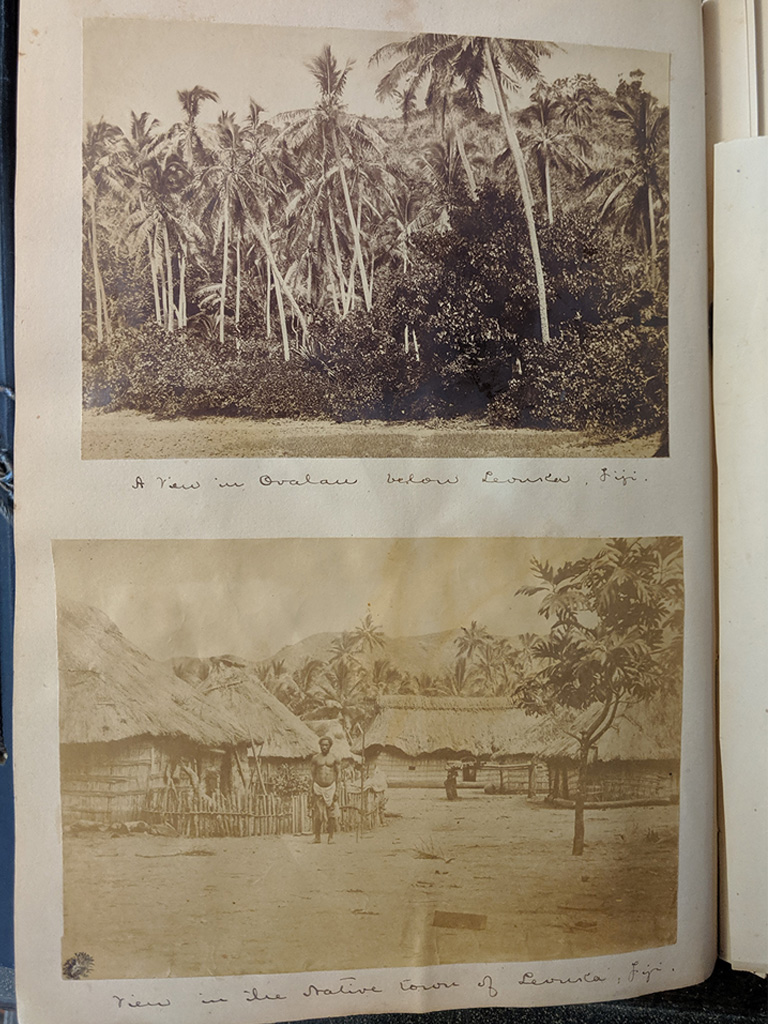 A View in Ovalau below Levuka, Fiji.
View in the Native town of Levuka, Fiji.